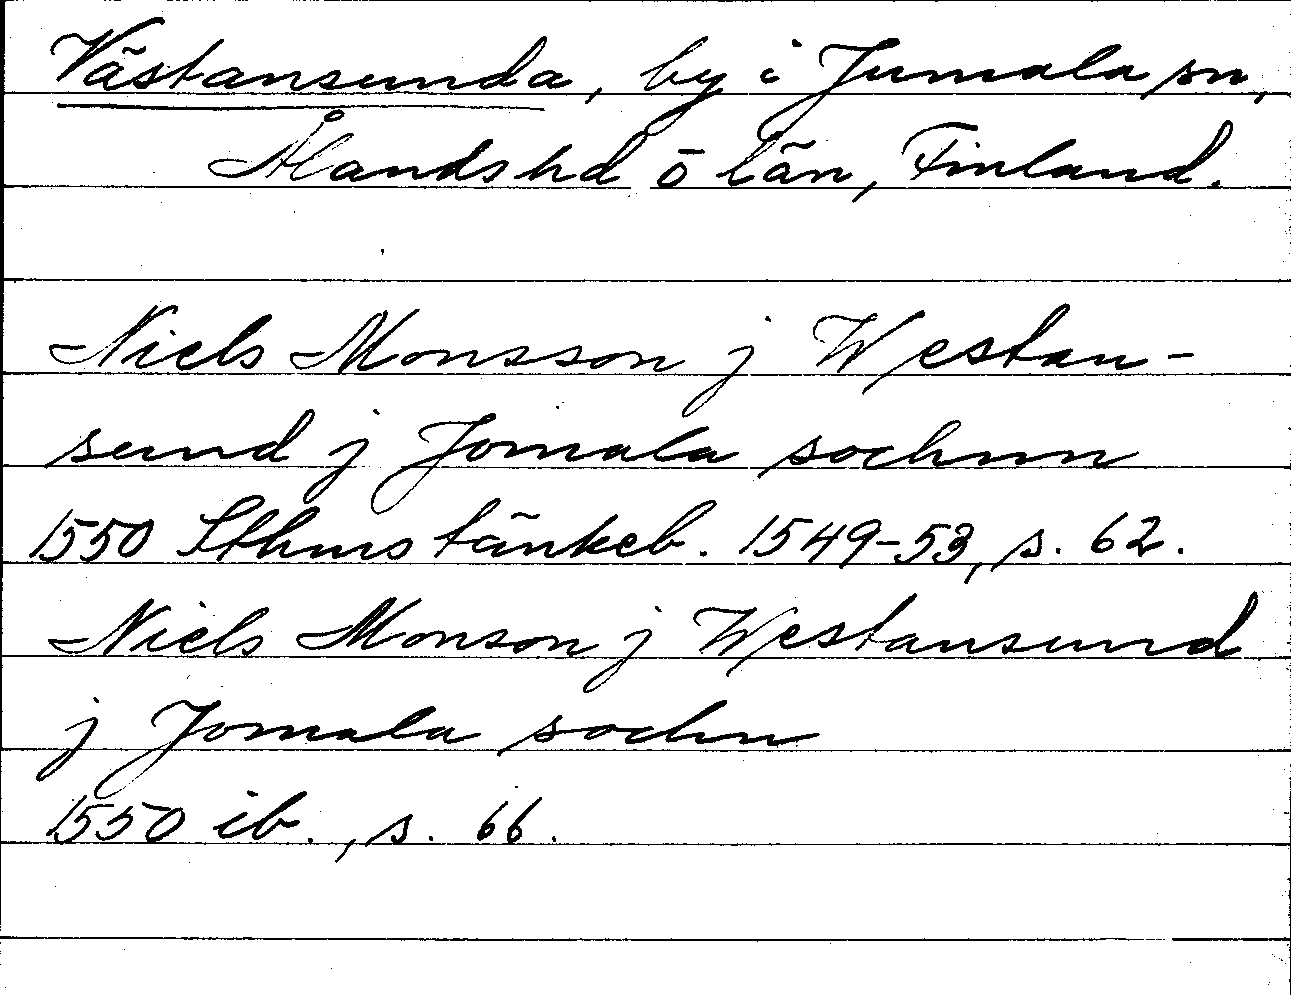 Västansunda, by i Jumala sn,
Ålands hd o län, Finland.
Niels Monsson j Westan-
sund j Jomala sochnn
1550 Sthms tänkeb. 1549-53, s. 62.
Niels Monson j Westansund
j Jomala sochn
1550 ib., s. 66.